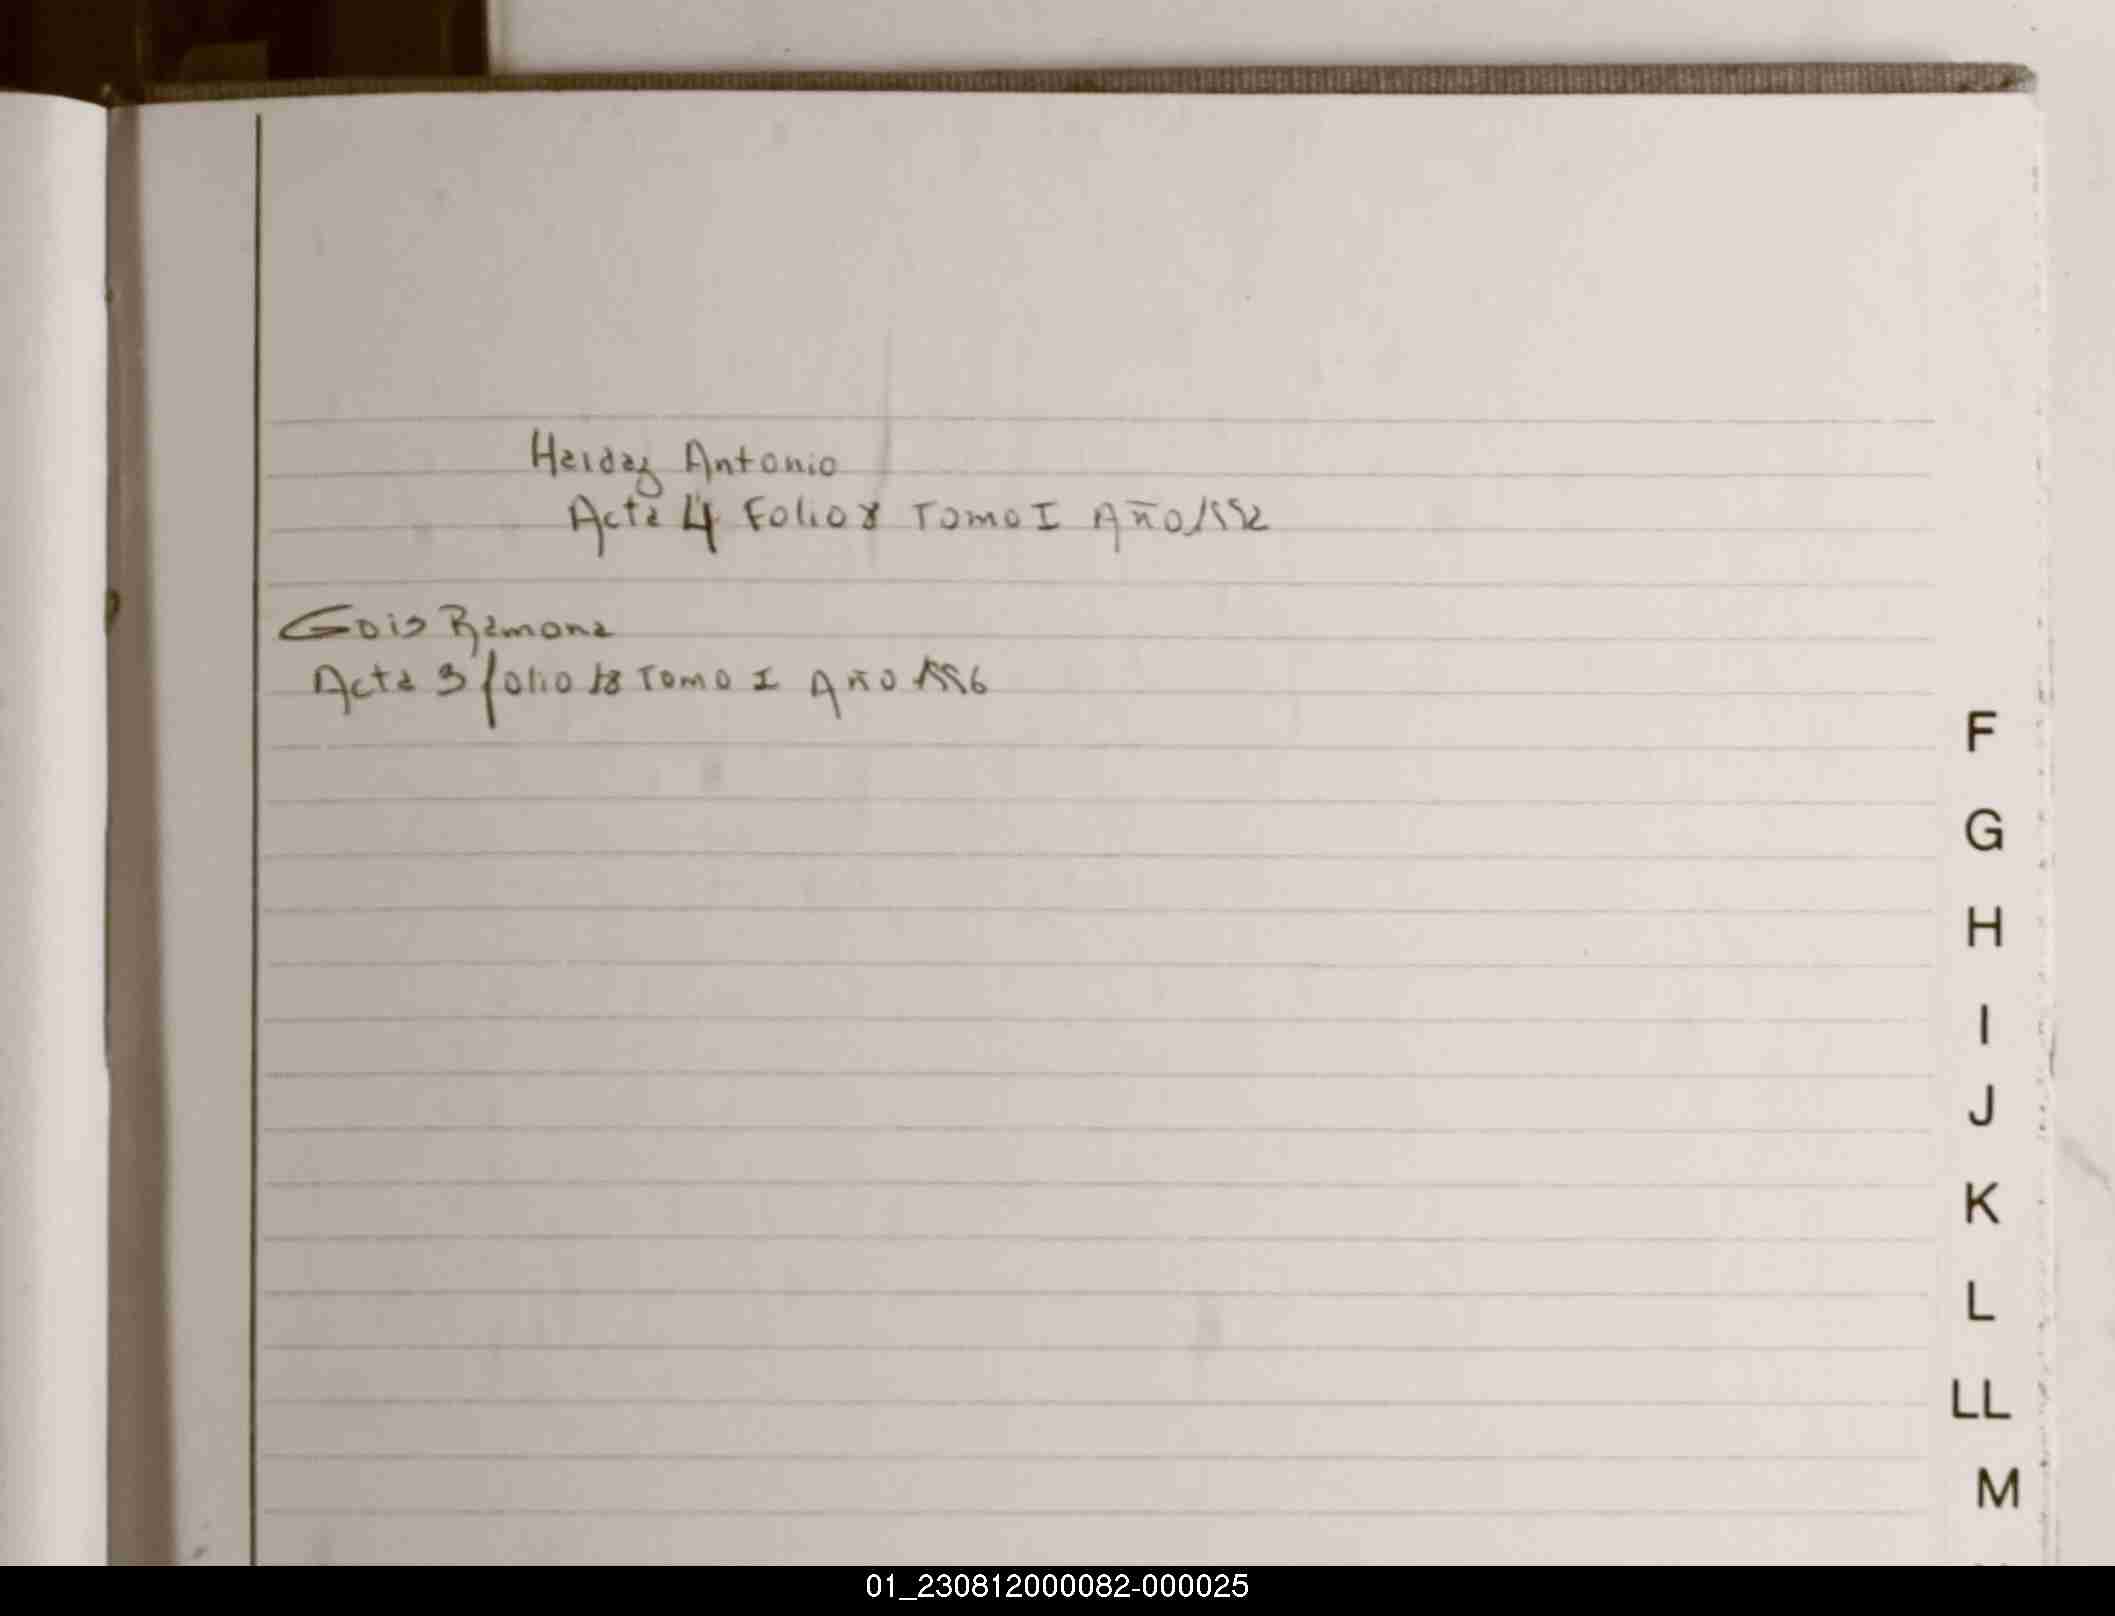 Haidaz Antonio
Acta 4 Folio 8 Tomo I Año 1992
Gois Ramona
Acta 3 folio 18 Tomo I Año 1996
F
G
H
I
J
K
L
LL
M
01_230812000082-000025